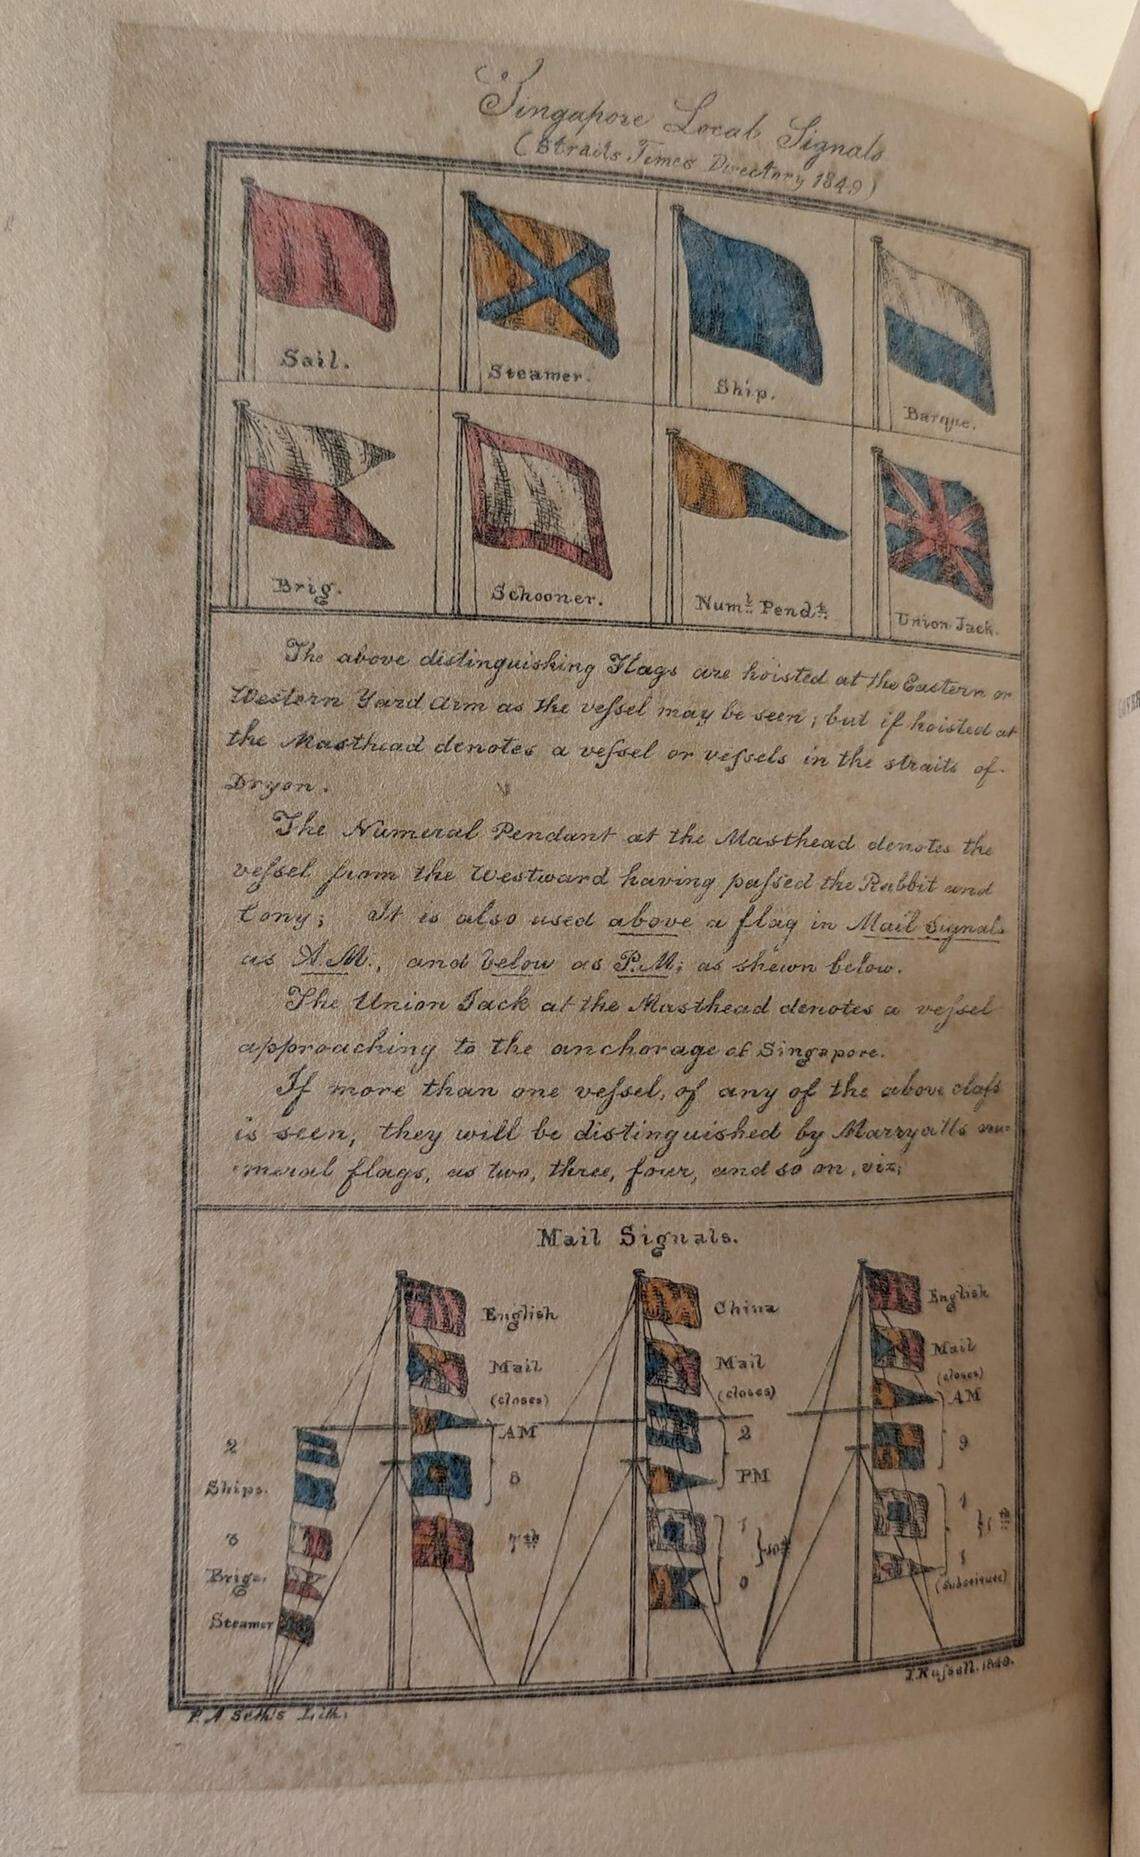 Singapore Local Signals
(Straits Times Directory 1849)
Sail.
Steamer.
Ship.
Barque.
Brig.
Schooner.
Num.l Pend.t:
Union Jack.
The above distinguishing Flags are hoisted at the Eastern or
Western Yard Arm as the vessel may be seen; but if hoisted at
the Masthead denotes a vessel or vessels in the straits of
Dryon.
The Numeral Pendant at the Masthead denotes the
vessel from the Westward having passed the Rabbit and
Cony; It is also used above a flag in Mail Signals
as A.M., and below as P.M; as shewn below.
The Union Jack at the Masthead denotes a vessel
approaching to the anchorage of Singapore.
If more than one vessel, of any of the above class
is seen, they will be distinguished by Marryatts nu-
meral flags, as two, three, four, and so on, viz;
Mail Signals.
English
Mail
(closes)
AM
8
7th
2
Ships.
3
Brigs.
Steamer
China
Mail
(closes)
2
PM
1
0
10th
English
Mail
(closes)
AM
9
1
1
(substitute)
P. A Seth's Lith.
T. Russell. 1849.